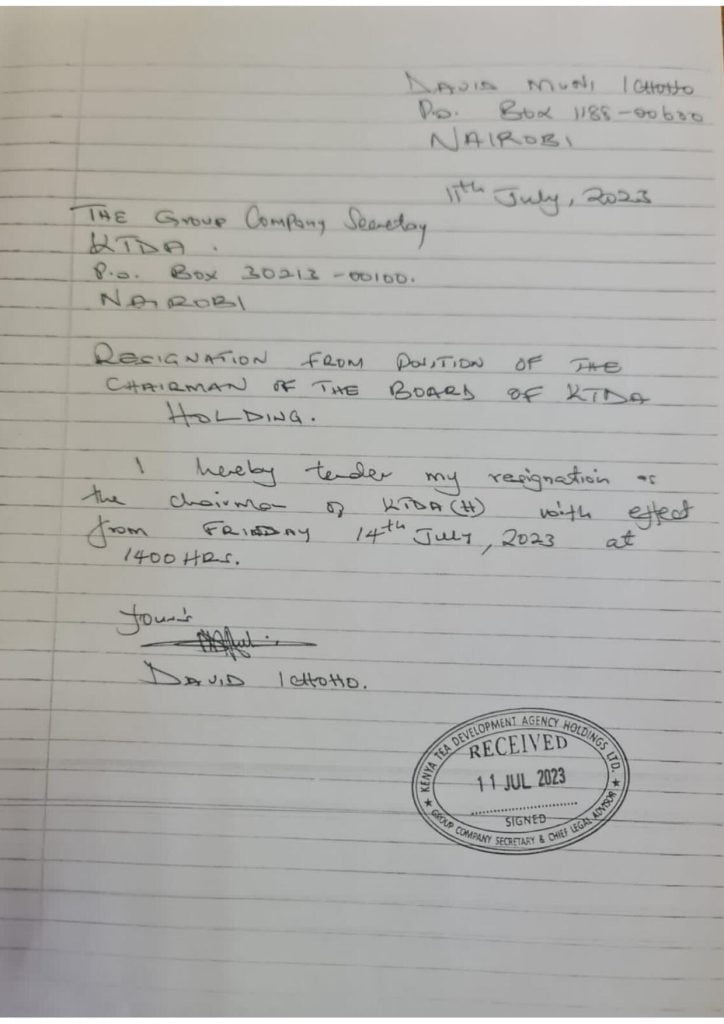 DAVID MUNI ICHOHO
P.o. Box 1188-00600
NAIROBI
11th July, 2023
THE Group Company Secretary
KTDA.
P.o. Box 30213-00100.
NAIROBI
RESIGNATION FROM POSITION OF THE
CHAIRMAN OF THE BOARD OF KTDA
HOLDING.
I hereby tender my resignation as
the chairman of KTDA(H) with effect
from FRIDAY 14th July, 2023 at
1400 HRS.
Yours
DAVID ICHOHO.
KENYA TEA DEVELOPMENT AGENCY HOLDINGS LTD.
RECEIVED
11 JUL 2023
SIGNED
GROUP COMPANY SECRETARY & CHIEF LEGAL ADVISOR